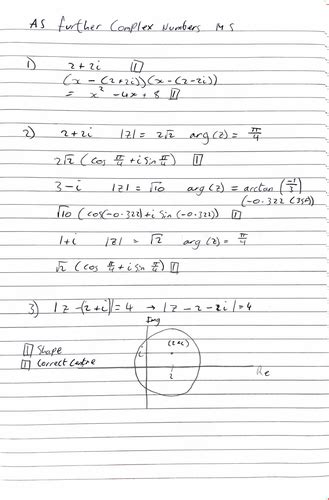 AS Further Complex Numbers MS
1) 2+2i [1]
(x - (2+2i))(x - (2-2i))
= x² - 4x + 8 [1]
2) 2+2i |z| = 2√2 arg(z) = π/4
2√2 (cos π/4 + i sin π/4) [1]
3-i |z| = √10 arg(z) = arctan (-1/3)
(-0.322 (3sf))
√10 (cos(-0.322) + i sin(-0.322)) [1]
1+i |z| = √2 arg(z) = π/4
√2 (cos π/4 + i sin π/4) [1]
3) |z - (2+i)| = 4 → |z - 2 - 2i| = 4
Img
[1] Shape
[1] Correct Centre
i
Re